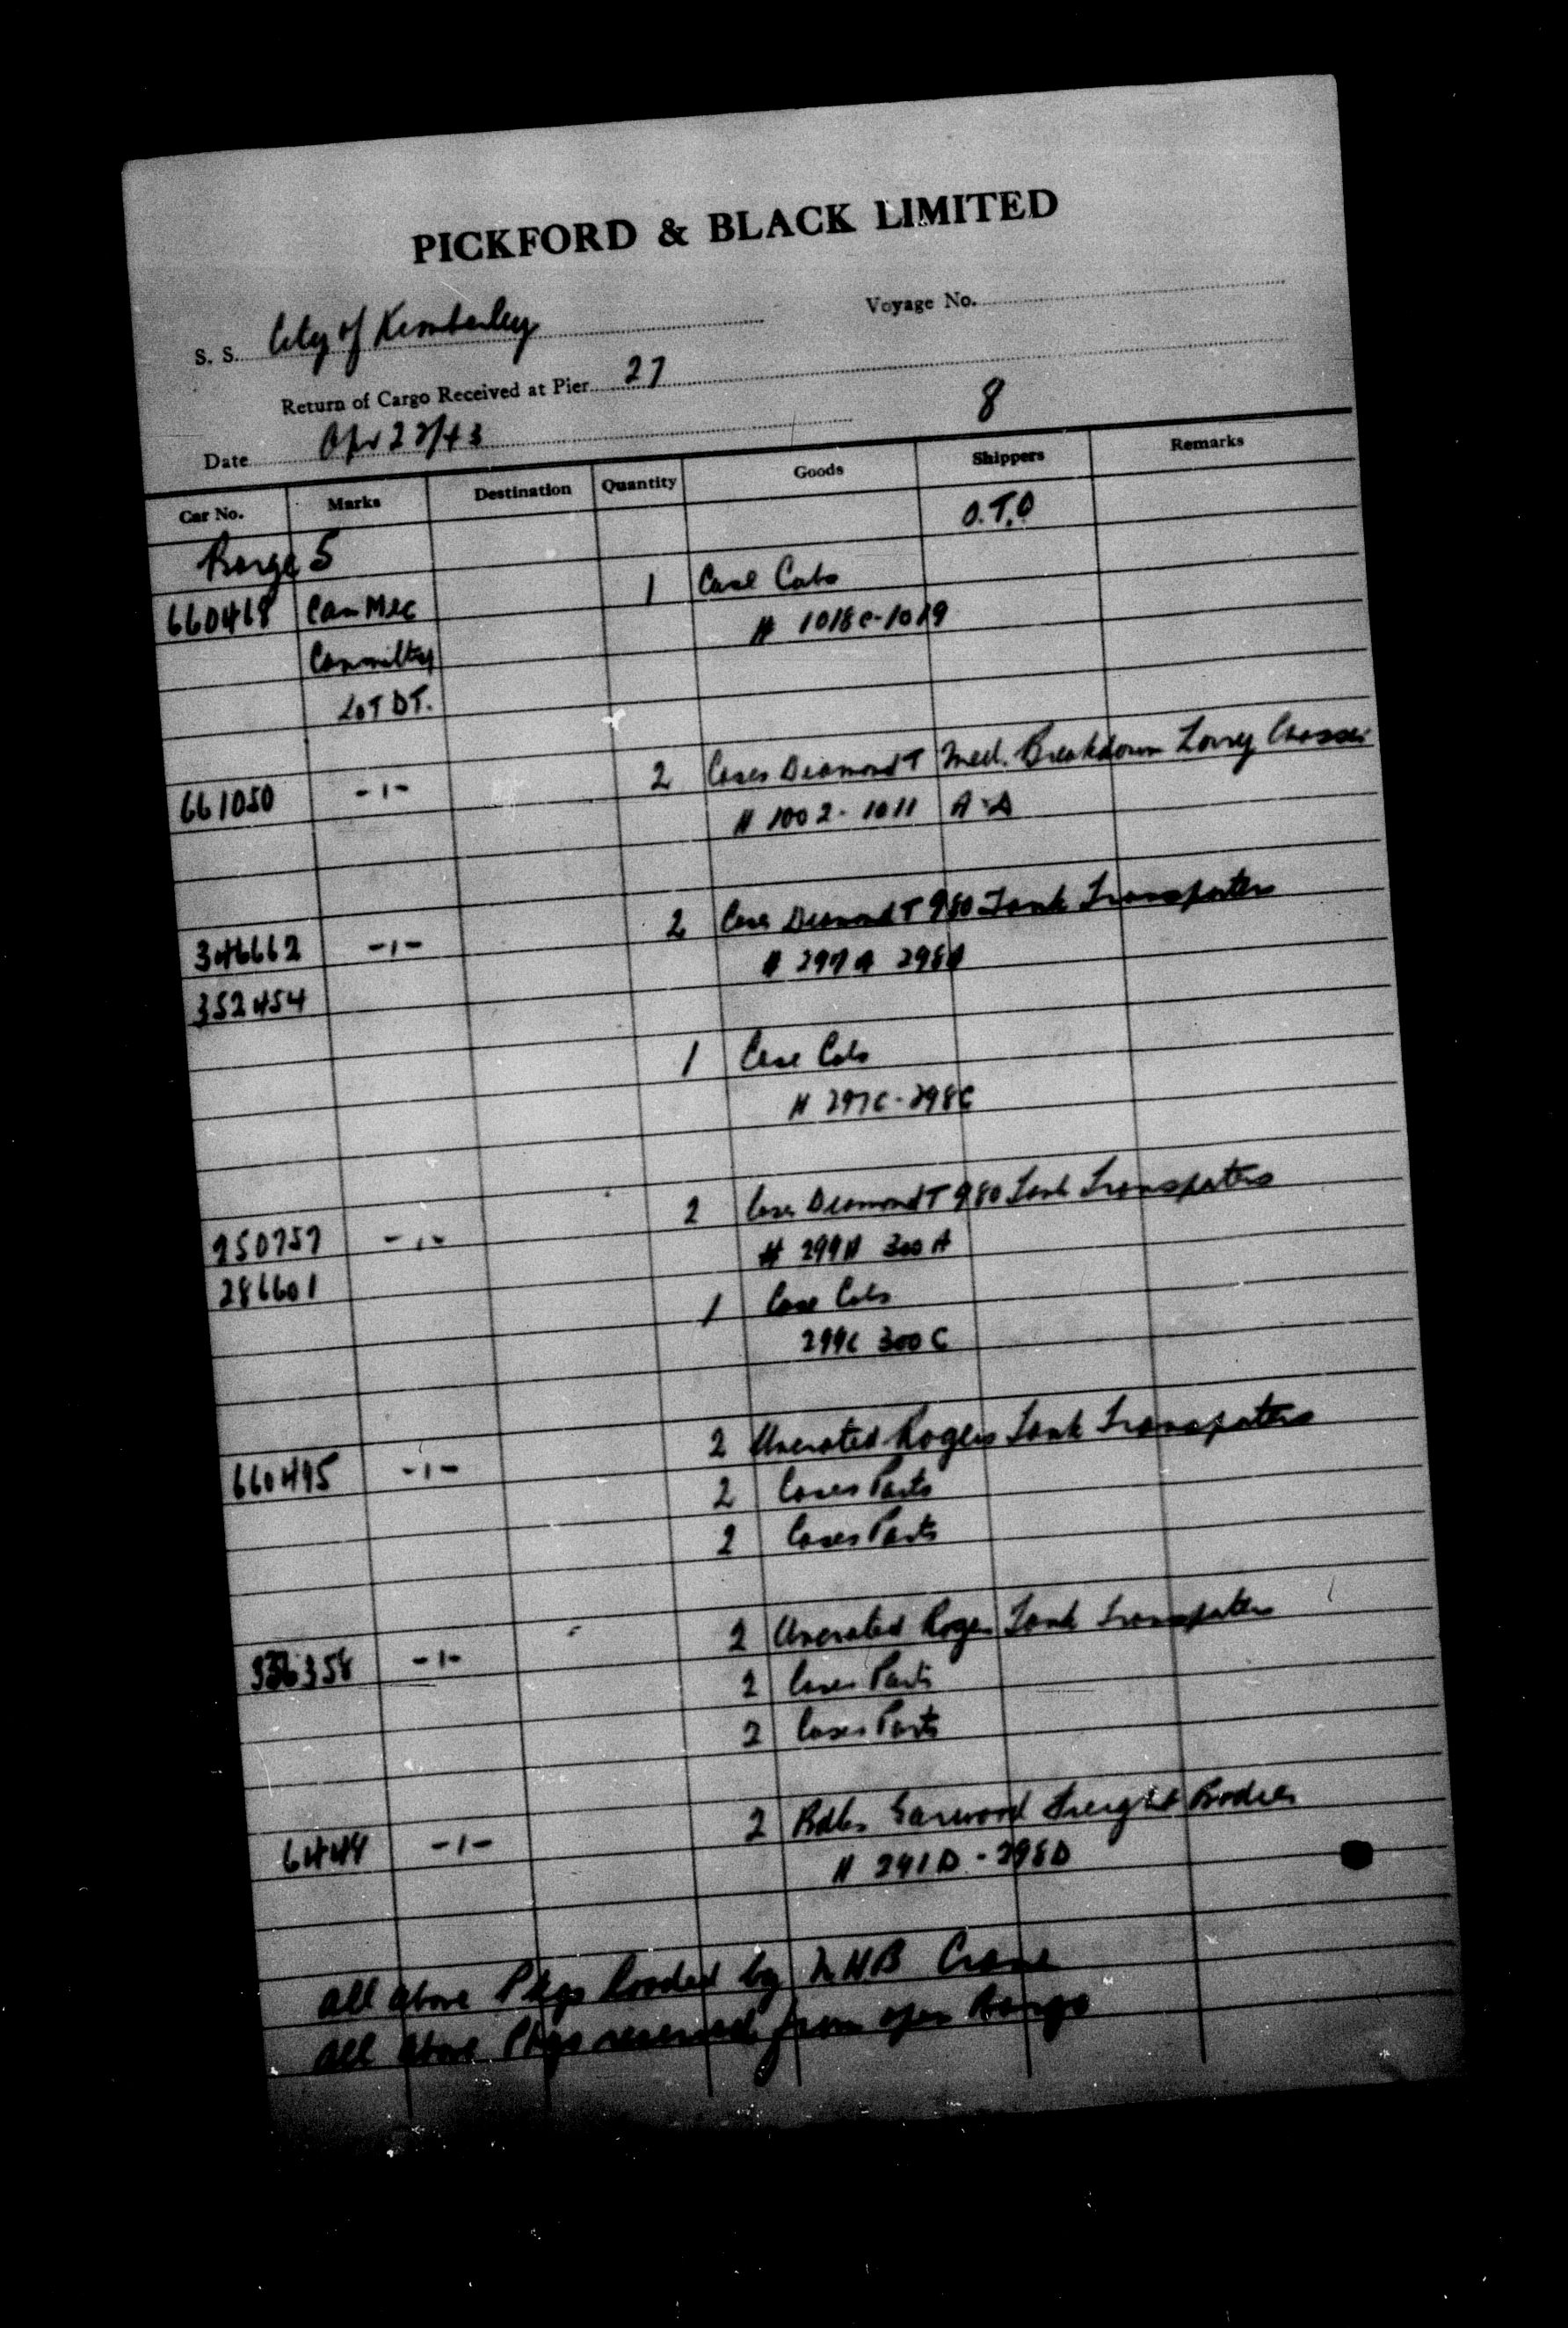 PICKFORD & BLACK LIMITED
S. S. City of Kimberley Voyage No.
Return of Cargo Received at Pier 27
Date Apr 22/43 8
Car No. Marks Destination Quantity Goods Shippers Remarks
Barge 5 O.T.O
660468 Can Mec 1 Case Cabs
Committee # 1018C-1019
LOT DT.
661050 -1- 2 Cases Diamond T Med. Breakdown Lorry Chassis
# 1002-1011 A-D
346662 -1- 2 Cases Diamond T 980 Tank Transporters
352454 # 297A 298A
1 Case Cabs
# 297C-298C
250757 -1- 2 Cases Diamond T 980 Tank Transporters
286601 # 299A 300A
1 Case Cabs
299C 300C
660495 -1- 2 Uncrated Rogers Tank Transporters
2 Cases Parts
2 Cases Parts
336358 -1- 2 Uncrated Rogers Tank Transporters
2 Cases Parts
2 Cases Parts
-1- 2 Bdls Garwood Freight Bodies
All above Pkgs loaded by N.H.B Crane
All above Pkgs received from open barge